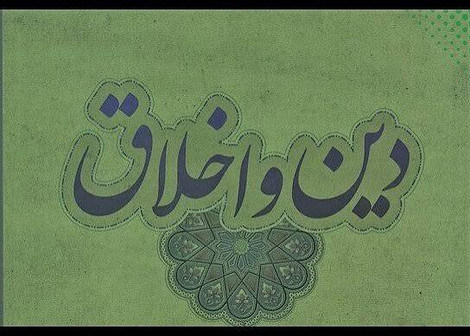 دین و اخلاق